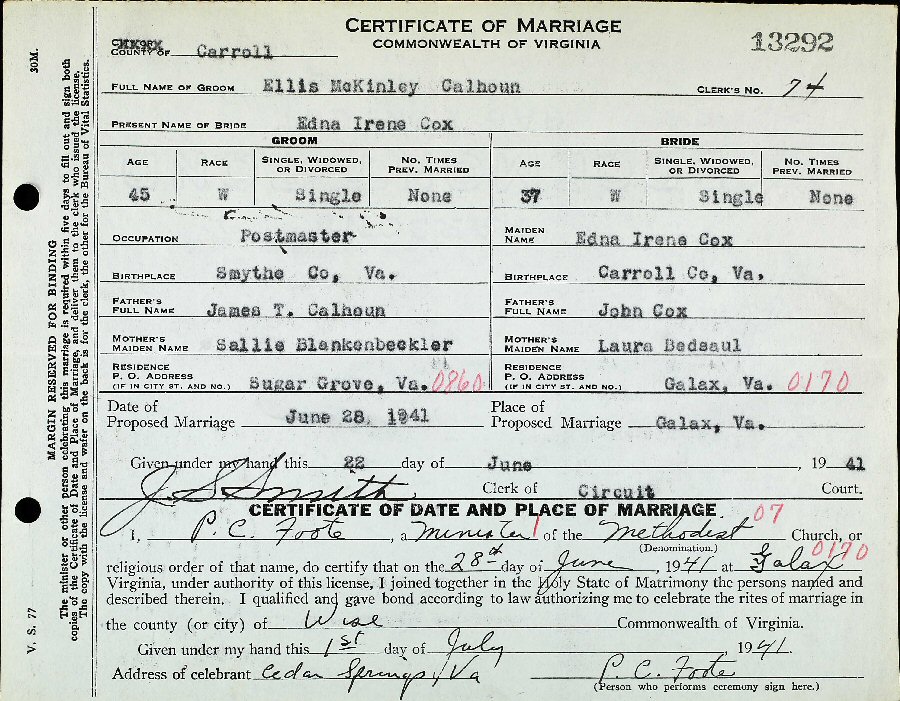 CERTIFICATE OF MARRIAGE
COMMONWEALTH OF VIRGINIA
13292
COUNTY OF Carroll
FULL NAME OF GROOM Ellis McKinley Calhoun CLERK'S NO. 74
PRESENT NAME OF BRIDE Edna Irene Cox
GROOM BRIDE
AGE RACE SINGLE, WIDOWED, OR DIVORCED NO. TIMES PREV. MARRIED AGE RACE SINGLE, WIDOWED, OR DIVORCED NO. TIMES PREV. MARRIED
45 W Single None 37 W Single None
OCCUPATION Postmaster MAIDEN NAME Edna Irene Cox
BIRTHPLACE Smythe Co, Va. BIRTHPLACE Carroll Co, Va.
FATHER'S FULL NAME James T. Calhoun FATHER'S FULL NAME John Cox
MOTHER'S MAIDEN NAME Sallie Blankenbeckler MOTHER'S MAIDEN NAME Laura Bedsaul
RESIDENCE P. O. ADDRESS (IF IN CITY ST. AND NO.) Sugar Grove, Va. 0860 RESIDENCE P. O. ADDRESS (IF IN CITY ST. AND NO.) Galax, Va. 0170
Date of Proposed Marriage June 28, 1941 Place of Proposed Marriage Galax, Va.
Given under my hand this 22 day of June, 1941
J S Smith Clerk of Circuit Court.
CERTIFICATE OF DATE AND PLACE OF MARRIAGE. 07
I, P. C. Foote, a Minister of the Methodist Church, or
(Denomination.)
religious order of that name, do certify that on the 28th day of June, 1941 at Galax 0170
Virginia, under authority of this license, I joined together in the Holy State of Matrimony the persons named and
described therein. I qualified and gave bond according to law authorizing me to celebrate the rites of marriage in
the county (or city) of Wise Commonwealth of Virginia.
Given under my hand this 1st day of July 1941.
Address of celebrant Cedar Springs, Va P. C. Foote
(Person who performs ceremony sign here.)
V. S. 77 30M.
MARGIN RESERVED FOR BINDING
The minister or other person celebrating this marriage is required within five days to fill out and sign both
copies of the Certificate of Date and Place of Marriage, and deliver them to the clerk who issued the license.
The copy with the license and wafer on the back is for the clerk, the other for the Bureau of Vital Statistics.